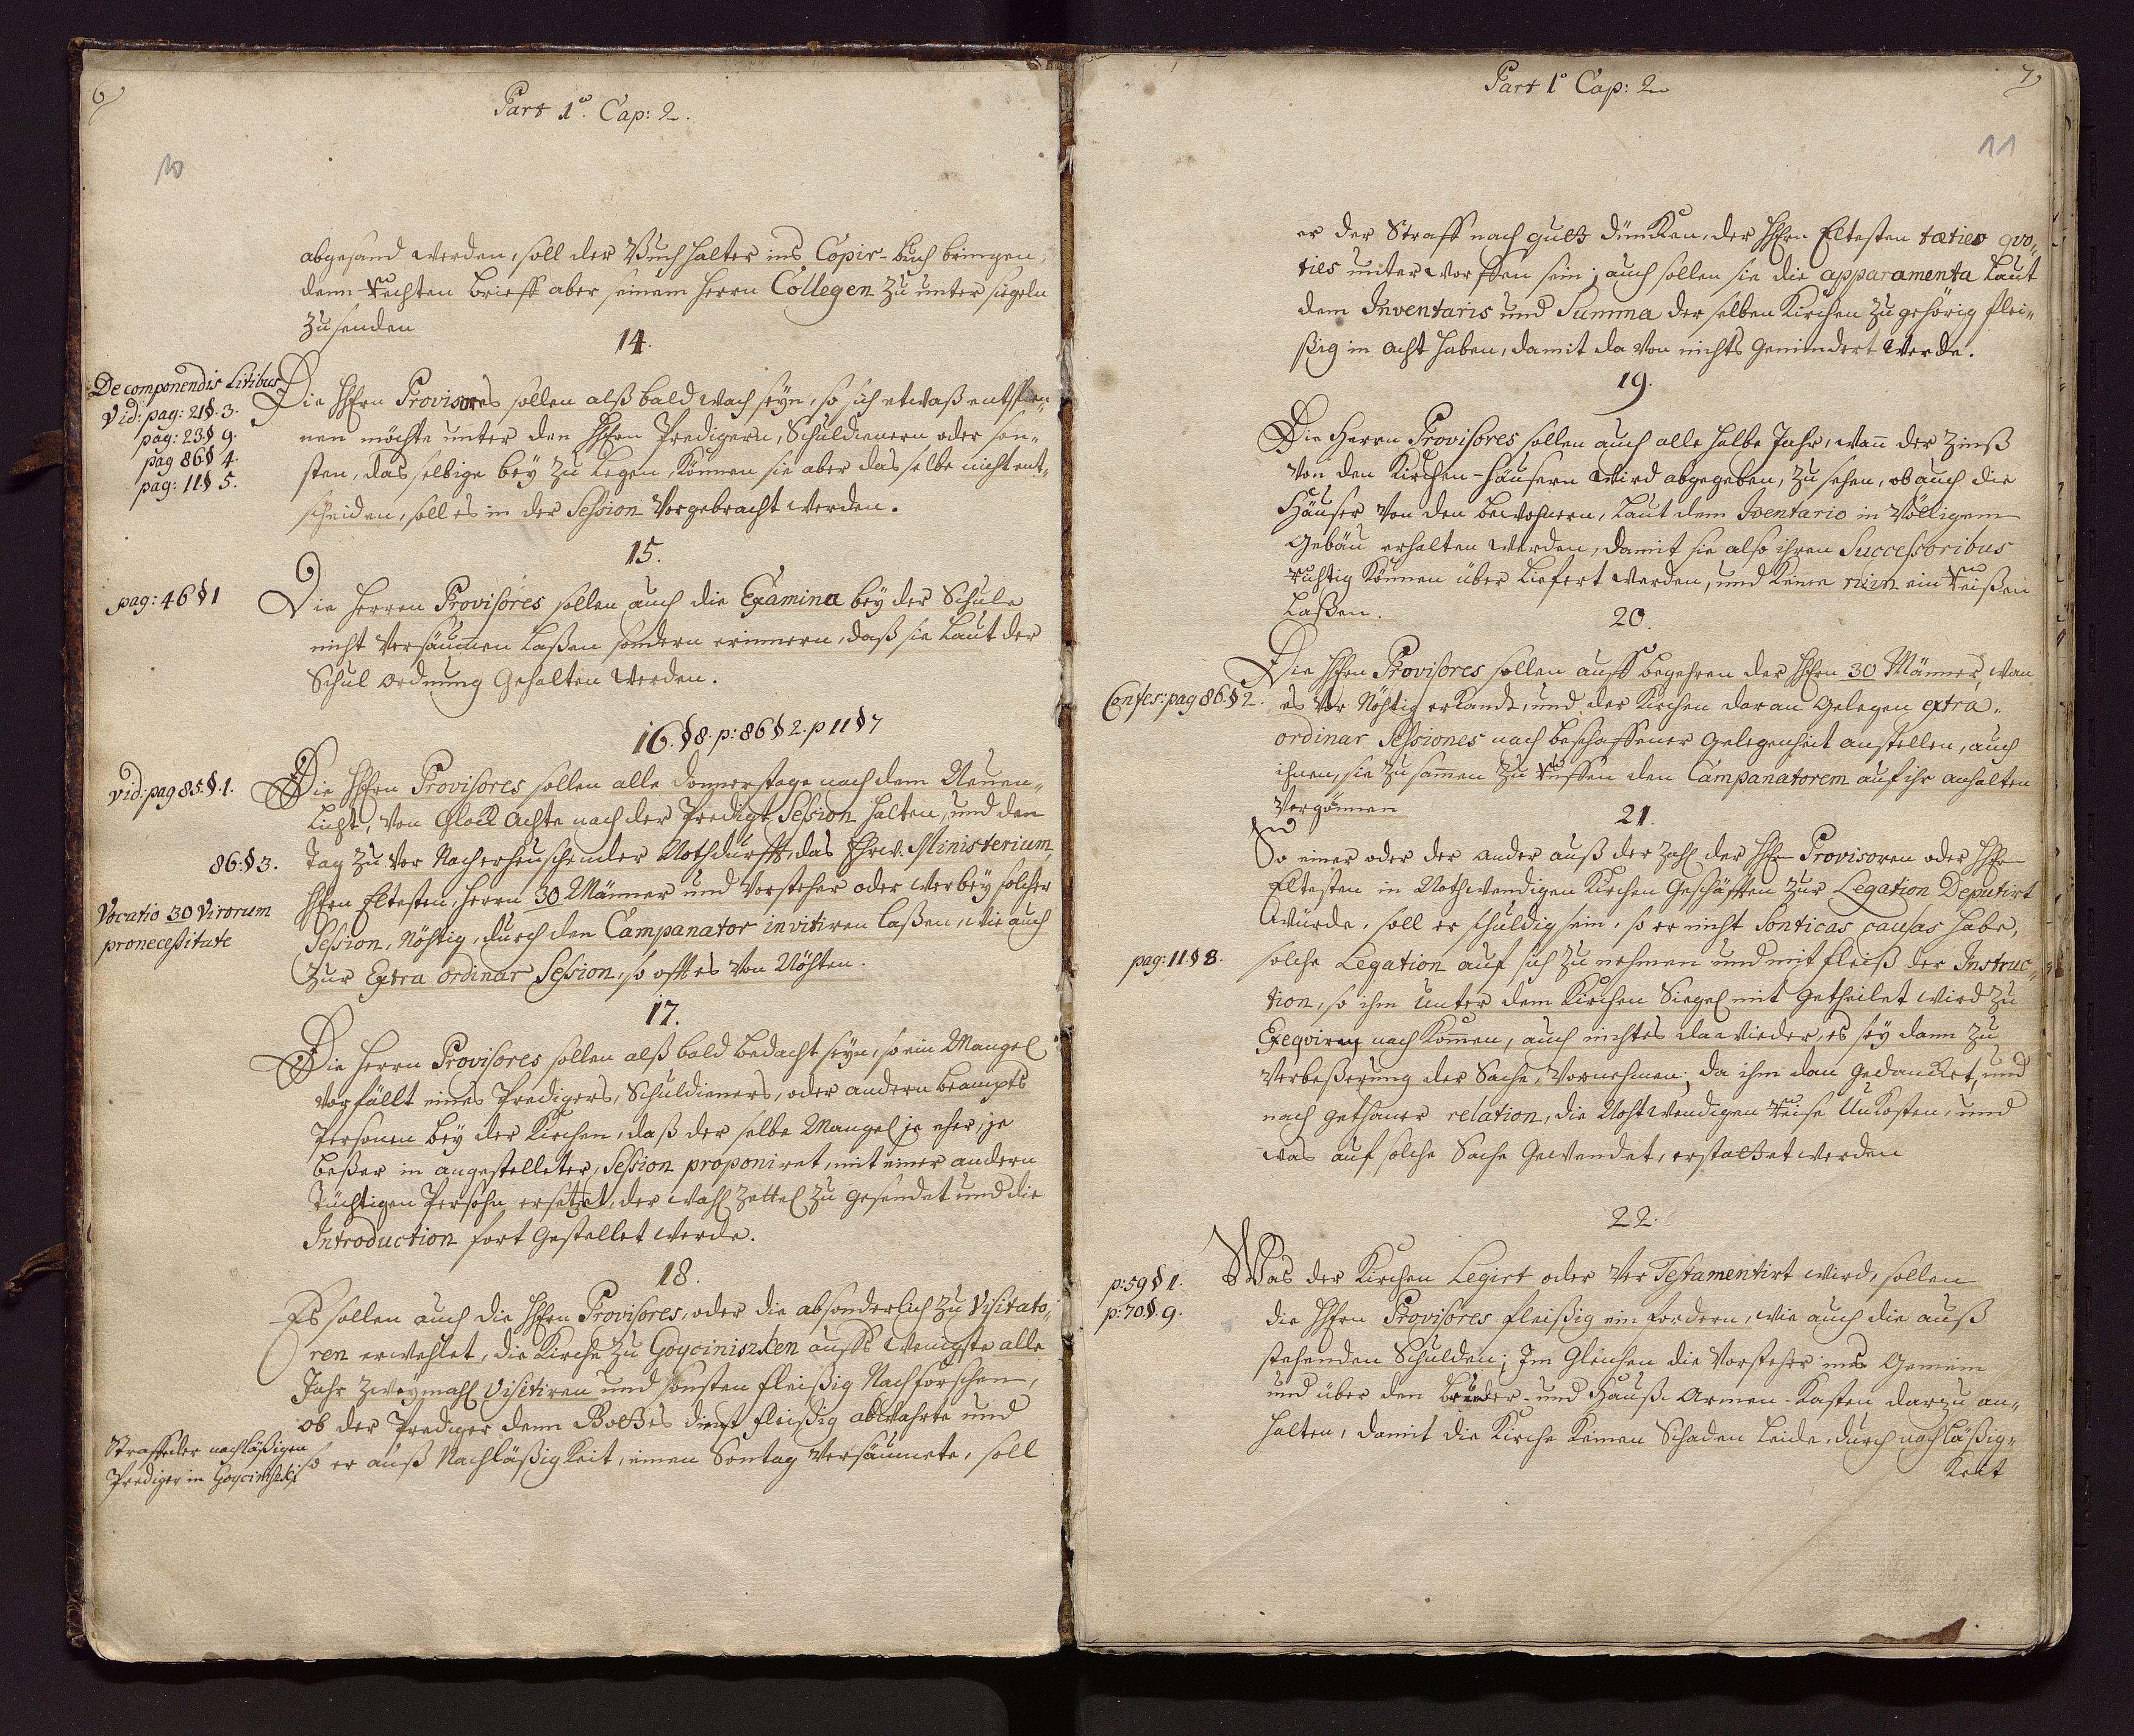 6
Part 1º. Cap: 2.
10
abgesand werden, soll der Buchhalter ins Copir-Buch bringen,
denn rechten brieff aber seinem herrn Collegen zu unter siegeln
zusenden
14.
De componendis Litibus
Vid: pag: 21§.3.
pag: 23§ 9.
pag 86§ 4.
pag: 11§ 5.
Die HHrn Provisores sollen alß bald wach seyn, so sich etwaß entspin„
nen möchte unter den HHrn Predigern, Schuldienern oder son„
sten, das selbige bey zu legen, können sie aber das selbe nicht ent„
scheiden, soll es in der Session vorgebracht werden.
15.
pag: 46§1
Die Herren Provisores sollen auch die Examina bey der Schule
nicht versäumen laßen sondern erinnern, daß sie laut der
Schul ordnung gehalten werden.
16. §8. p: 86§2. p 11§7
vid: pag 85.§.1.
Die HHrn Provisores sollen alle donnerstage nach dem Neuen„
licht, von Glock achte nach der Predigt Session halten, und den
86.§3.
Tag zu vor nach erheuschender Nothdurfft, das Ehrw. Ministerium,
HHrn Eltesten, Herrn 30 Männer und Vorsteher oder wer bey solcher
Vocatio 30 Virorum
pro necessitate
Session, nöhtig, durch den Campanator invitiren laßen, wie auch
zur Extra ordinar Session, so offt es von Nöhten.
17.
Die Herrn Provisores sollen alß bald bedacht seyn, so ein Mangel
vorfällt eines Predigers, Schuldieners, oder andern beampts
Personen bey der Kirchen, daß der selbe Mangel je eher, je
beßer in angestellter, Session proponiret, mit einer andern
tüchtigen Persohn ersetzet, der wahl zettel zu gesendet und die
Introduction fort gestellet werde.
18.
Es sollen auch die HHrn Provisores, oder die absonderlich zu Visitato„
ren erwehlet, die Kirche zu Goyciniszken auffs wenigste alle
Jahr zweymahl visitiren und sonsten fleißig Nachforschen,
ob der Prediger denn Gottes dienst fleißig abwahrte und
Straffe der nachläßigen
Prediger in Goyciniszki
so er auß Nachläßigkeit, einen Sontag versäumete, soll
7
Part 1º Cap: 2
11
er der Straff nach gutt düncken, der HHrn Eltesten toties quo„
ties unterworffen sein; auch sollen sie die apparamenta laut
dem Inventario und Summa der selben Kirchen zugehörig flei„
ßig in acht haben, damit da von nichts gemindert werde.
19.
Die Herrn Provisores sollen auch alle halbe Jahr, wann der Zinß
von den Kirchen-Häusern wird abgegeben, zu sehen, ob auch die
Häuser von den bewohnern, laut dem Iventario in völligem
Gebäu erhalten werden, damit sie also ihren Successoribus
richtig können über liefert werden, und keine ruin ein reißen
laßen.
20.
Die HHrn Provisores sollen auff begehren der HHrn 30 Männer, wan
Confer: pag 86.§2.
es vor Nöhtig erkandt, und der Kirchen daran gelegen extra„
ordinar Sessiones nach beschaffener gelegenheit anstellen, auch
ihnen, sie zusammen zu ruffen den Campanatorem auf ihr anhalten
vergönnen
21.
So einer oder der ander auß der Zahl der HHrn Provisoren oder HHrn
Eltesten in Nothwendigen Kirchen Geschäfften zur Legation Deputirt
würde, soll er schuldig sein, so er nicht Sonticas causas habe,
pag: 11§8.
solche Legation auf sich zu nehmen und mit fleiß der Instruc„
tion, so ihm unter dem Kirchen Siegel mit getheilet wird zu
Exeqviren nachkomen, auch nichtes da wieder, es sey dann zu
Verbeßerung der Sache, Vornehmen; da ihm dan gedancket, und
nach gethaner relation, die Nohtwendigen reise Unkosten, und
was auf solche Sache gewendet, erstattet werden
22.
p: 59§1.
p: 70.§.9.
Was der Kirchen Legirt oder Ver Testamentirt wird, sollen
die HHrn Provisores fleißig ein fordern, wie auch die auß
stehenden Schulden; Im gleichen die Vorsteher ins Gemein
und über den brüder- und Hauß-Armen-Kasten darzu an„
halten, damit die Kirche keinen Schaden leide, durch nachläßig„
keit